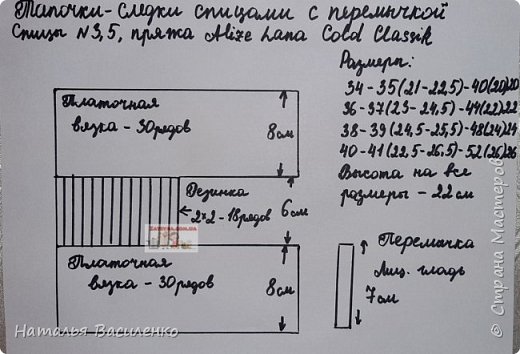 Тапочки-Следки спицами с перемычкой
Спицы N3,5, пряжа Alize Lana Gold Classik
Размеры:
34-35(21-22,5)-40(20)20
36-37(23-24,5)-44(22)22
38-39(24,5-25,5)-48(24)24
40-41(22,5-26,5)-52(26)26
Высота на все
размеры - 22см
Платочная
вязка - 30рядов
8см
Резинка
2*2-18рядов
6см
Платочная
вязка - 30рядов
8см
Перемычка
Лиц. гладь
7см
Наталья Василенко
© Страна Мастеров